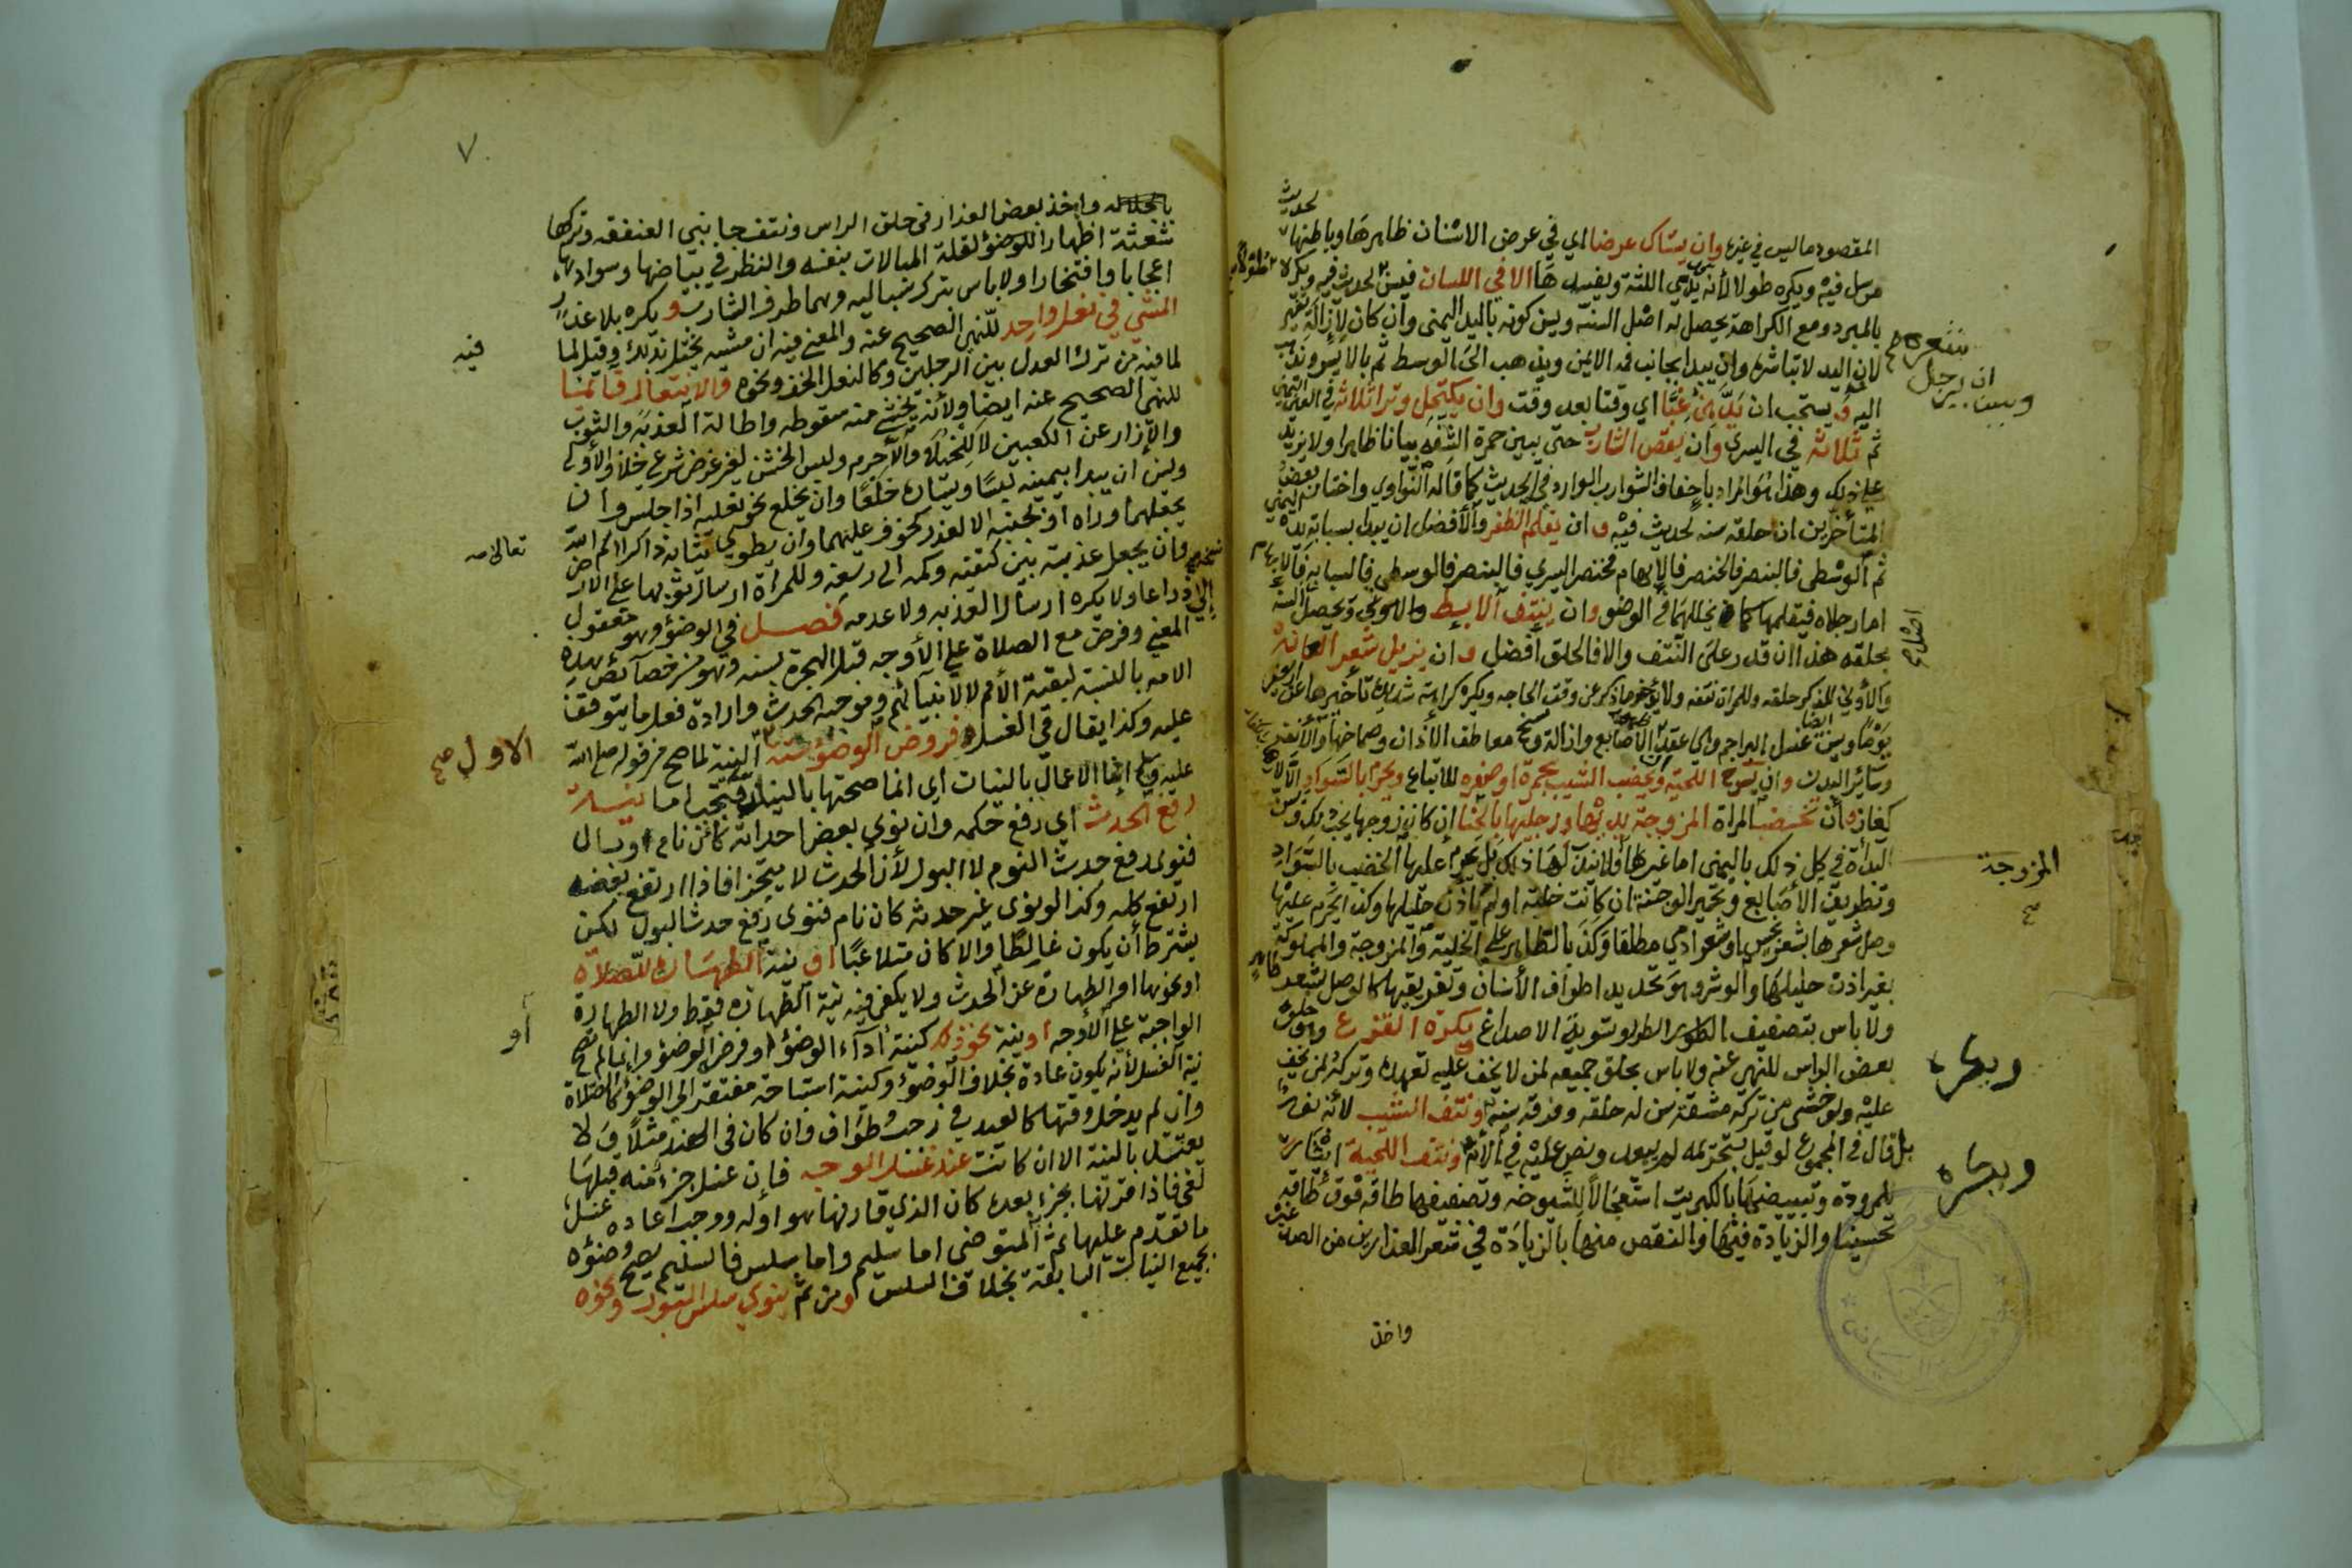 لحديث
المقصود ما ليس في غيره وان يستاك عرضا اي في عرض الاسنان ظاهرها وباطنها
مرسل فيه ويكره طولا لأنه يدمي اللثة ويفسدها الا في اللسان فيسن لحديث فيه ويكره
بالمبرد ومع الكراهة يحصل له اصل السنة ويسن كونه باليد اليمنى وان كان لإزالة تغير
لان اليد لا تباشره وان يبدا بجانب فمه الايمن ويذهب الى الوسط ثم بالايسر ويذهب
اليه ويستحب ان يدهن غبا اي وقتا بعد وقت وان يكتحل وترا ثلاثة في العين اليمنى
ثم ثلاثة في اليسرى وان يقص الشارب حتى يبين حمرة الشفه بيانا ظاهرا ولا يزيد
على ذلك وهذا هو المراد باحفاف الشوارب الوارد في الحديث كما قاله النواوي واختار بعض
المتأخرين ان حلقه سنه لحديث فيه وان يقلم الظفر والأفضل ان يبدا بسبابة يده اليمنى
ثم الوسطى فالبنصر فالخنصر فالإبهام فخنصر اليسرى فالبنصر فالوسطى فالسبابة فالإبهام
اما رجلاه فيقلمها كما يخللهما في الوضوء وان ينتف الابط والاولى ويحصل السنة
بحلقه هذا ان قدر على النتف والا فالحلق افضل وان يزيل شعر العانة
والأولى للذكر حلقه وللمراة نتفه ولا يؤخر ما ذكر عن وقت الحاجه ويكره كراهة شديدة تأخيرها عن اربعين
يوما ويسن ايضا غسل البراجم وهي عقد الأصابع وازالة وسخ معاطف الأذان وصماخها والأنف
وسائر البدن وان يسرح اللحية ويخضب الشيب بحمرة او صفرة للاتباع ويحرم بالسواد الا
لغاز وأن تخضب المراة المزوجة يديها ورجليها بالحنا ان كان زوجها يحب ذلك ويسن
البداة في كل ذلك باليمنى اما غيرها فلا يندب لها ذلك بل يحرم عليها الخضب بالسواد
وتطريف الأصابع وتحمير الوجنة ان كانت خلية او لم ياذن حليلها وكذا يحرم عليها
وصل شعرها بشعر نجس او شعر ادمي مطلقا وكذا بالطاهر على الخلية والمزوجة والمملوكة
بغير اذن حليلها والوشر وهو تحديد اطراف الأسنان وتفريقها كالوصل بشعر طاهر
ولا باس بتصفيف الطرر وتسوية الاصداغ ويكره القزع وهو حلق
بعض الراس للنهي عنه ولا باس بحلق جميعه لمن لا يخف عليه تعهده وتركه لمن يخف
عليه ولو خشي من تركه مشقة سن له حلقه وفرقه سنة ونتف الشيب لأنه نور
بل قال في المجموع لو قيل بتحريمه لم يبعد ونص عليه في الأم ونتف اللحية ايثارا
للمرودة وتبييضها بالكبريت استعجالا للشيوخة وتصفيفها طاقة فوق طاقة
تحسينا والزيادة فيها والنقص منها بالزيادة في شعر العذارين من الصدغين
واخذ
شعره صح
وسن ان يرجل
اصل صح
المزوجة
صح
ويكره
ويكره
٧
واخذ بعض العذار في حلق الراس ونتف جانبي العنفقه وتركها
شعثة اظهارا لقلة المبالات بنفسه والنظر في بياضها وسوادها
اعجابا وافتخارا ولا باس بترك سباليه وهما طرفا الشارب ويكره بلا عذر
المشي في نعل واحد للنهي الصحيح عنه والمعنى فيه ان مشيه يختل بذلك وقيل لما
لما فيه من ترك العدل بين الرجلين وكالنعل الخف ونحوه والانتعال قائما
للنهي الصحيح عنه ايضا ولأنه يخشى منه سقوطه واطالة العذبة والثوب
والإزار عن الكعبين لا للخيلاء والا حرم ولبس الخشن لغير غرض شرعي خلاف الأولى
وسن ان يبدا بيمينه لبسا ويساره خلعا وان يخلع نحو نعليه اذا جلس وان
يجعلهما وراه او بجنبه الا لعذر كخوف عليهما وان يطوي ثيابه ذاكرا اسم الله
وان يجعل عذبته بين كتفيه وكمه الى رسغه وللمراة ارسال ثوبها على الارض
ذراعا ولا يكره ارسال العذبه ولا عدمه فصل في الوضوء وهو معقول
المعنى وفرض مع الصلاة على الأوجه قبل الهجرة بسنه وهو من خصائص هذه
الامه بالنسبة لبقية الأمم لا لانبيائهم وموجبه الحدث وارادة فعل ما يتوقف
عليه وكذا يقال في الغسل فروض الوضوء ستة النية لما صح من قوله صلى الله
عليه وسلم انما الاعمال بالنيات اي انما صحتها بالنية فيجب اما نية
رفع الحدث اي رفع حكمه وان نوى بعض احداثه كأن نام وبال
فنوى رفع حدث النوم لا البول لأن الحدث لا يتجزا فاذا ارتفع بعضه
ارتفع كله وكذا لو نوى غير حدثه كان نام فنوى رفع حدث البول لكن
يشترط أن يكون غالطا والا كان متلاعبا او نية الطهارة للصلاة
او نحوها او الطهارة عن الحدث ولا يكفي فيه نية الطهارة فقط ولا الطهارة
الواجبة على الأوجه او نية نحو ذلك كنية أداء الوضوء او فرض الوضوء وانما لم تصح
نية الغسل لأنه يكون عادة بخلاف الوضوء وكنية استباحة مفتقر الى الوضوء كالصلاة
وان لم يدخل وقتها كالعيد في رجب وطواف وان كان في الهند مثلا ولا
يعتد بالنية الا ان كانت عند غسل الوجه فإن غسل جزءا منه قبلها
لغى فاذا قرنها بجزء بعده كان الذي قارنها هو اوله ووجب اعادة غسل
ما تقدم عليها ثم المتوضي اما سليم واما سلس فالسليم يصح وضوءه
بجميع النيات السابقة بخلاف السلس ومن ثم ينوي سلس البول ونحوه
فيه
تعالى
الاول صح
أو